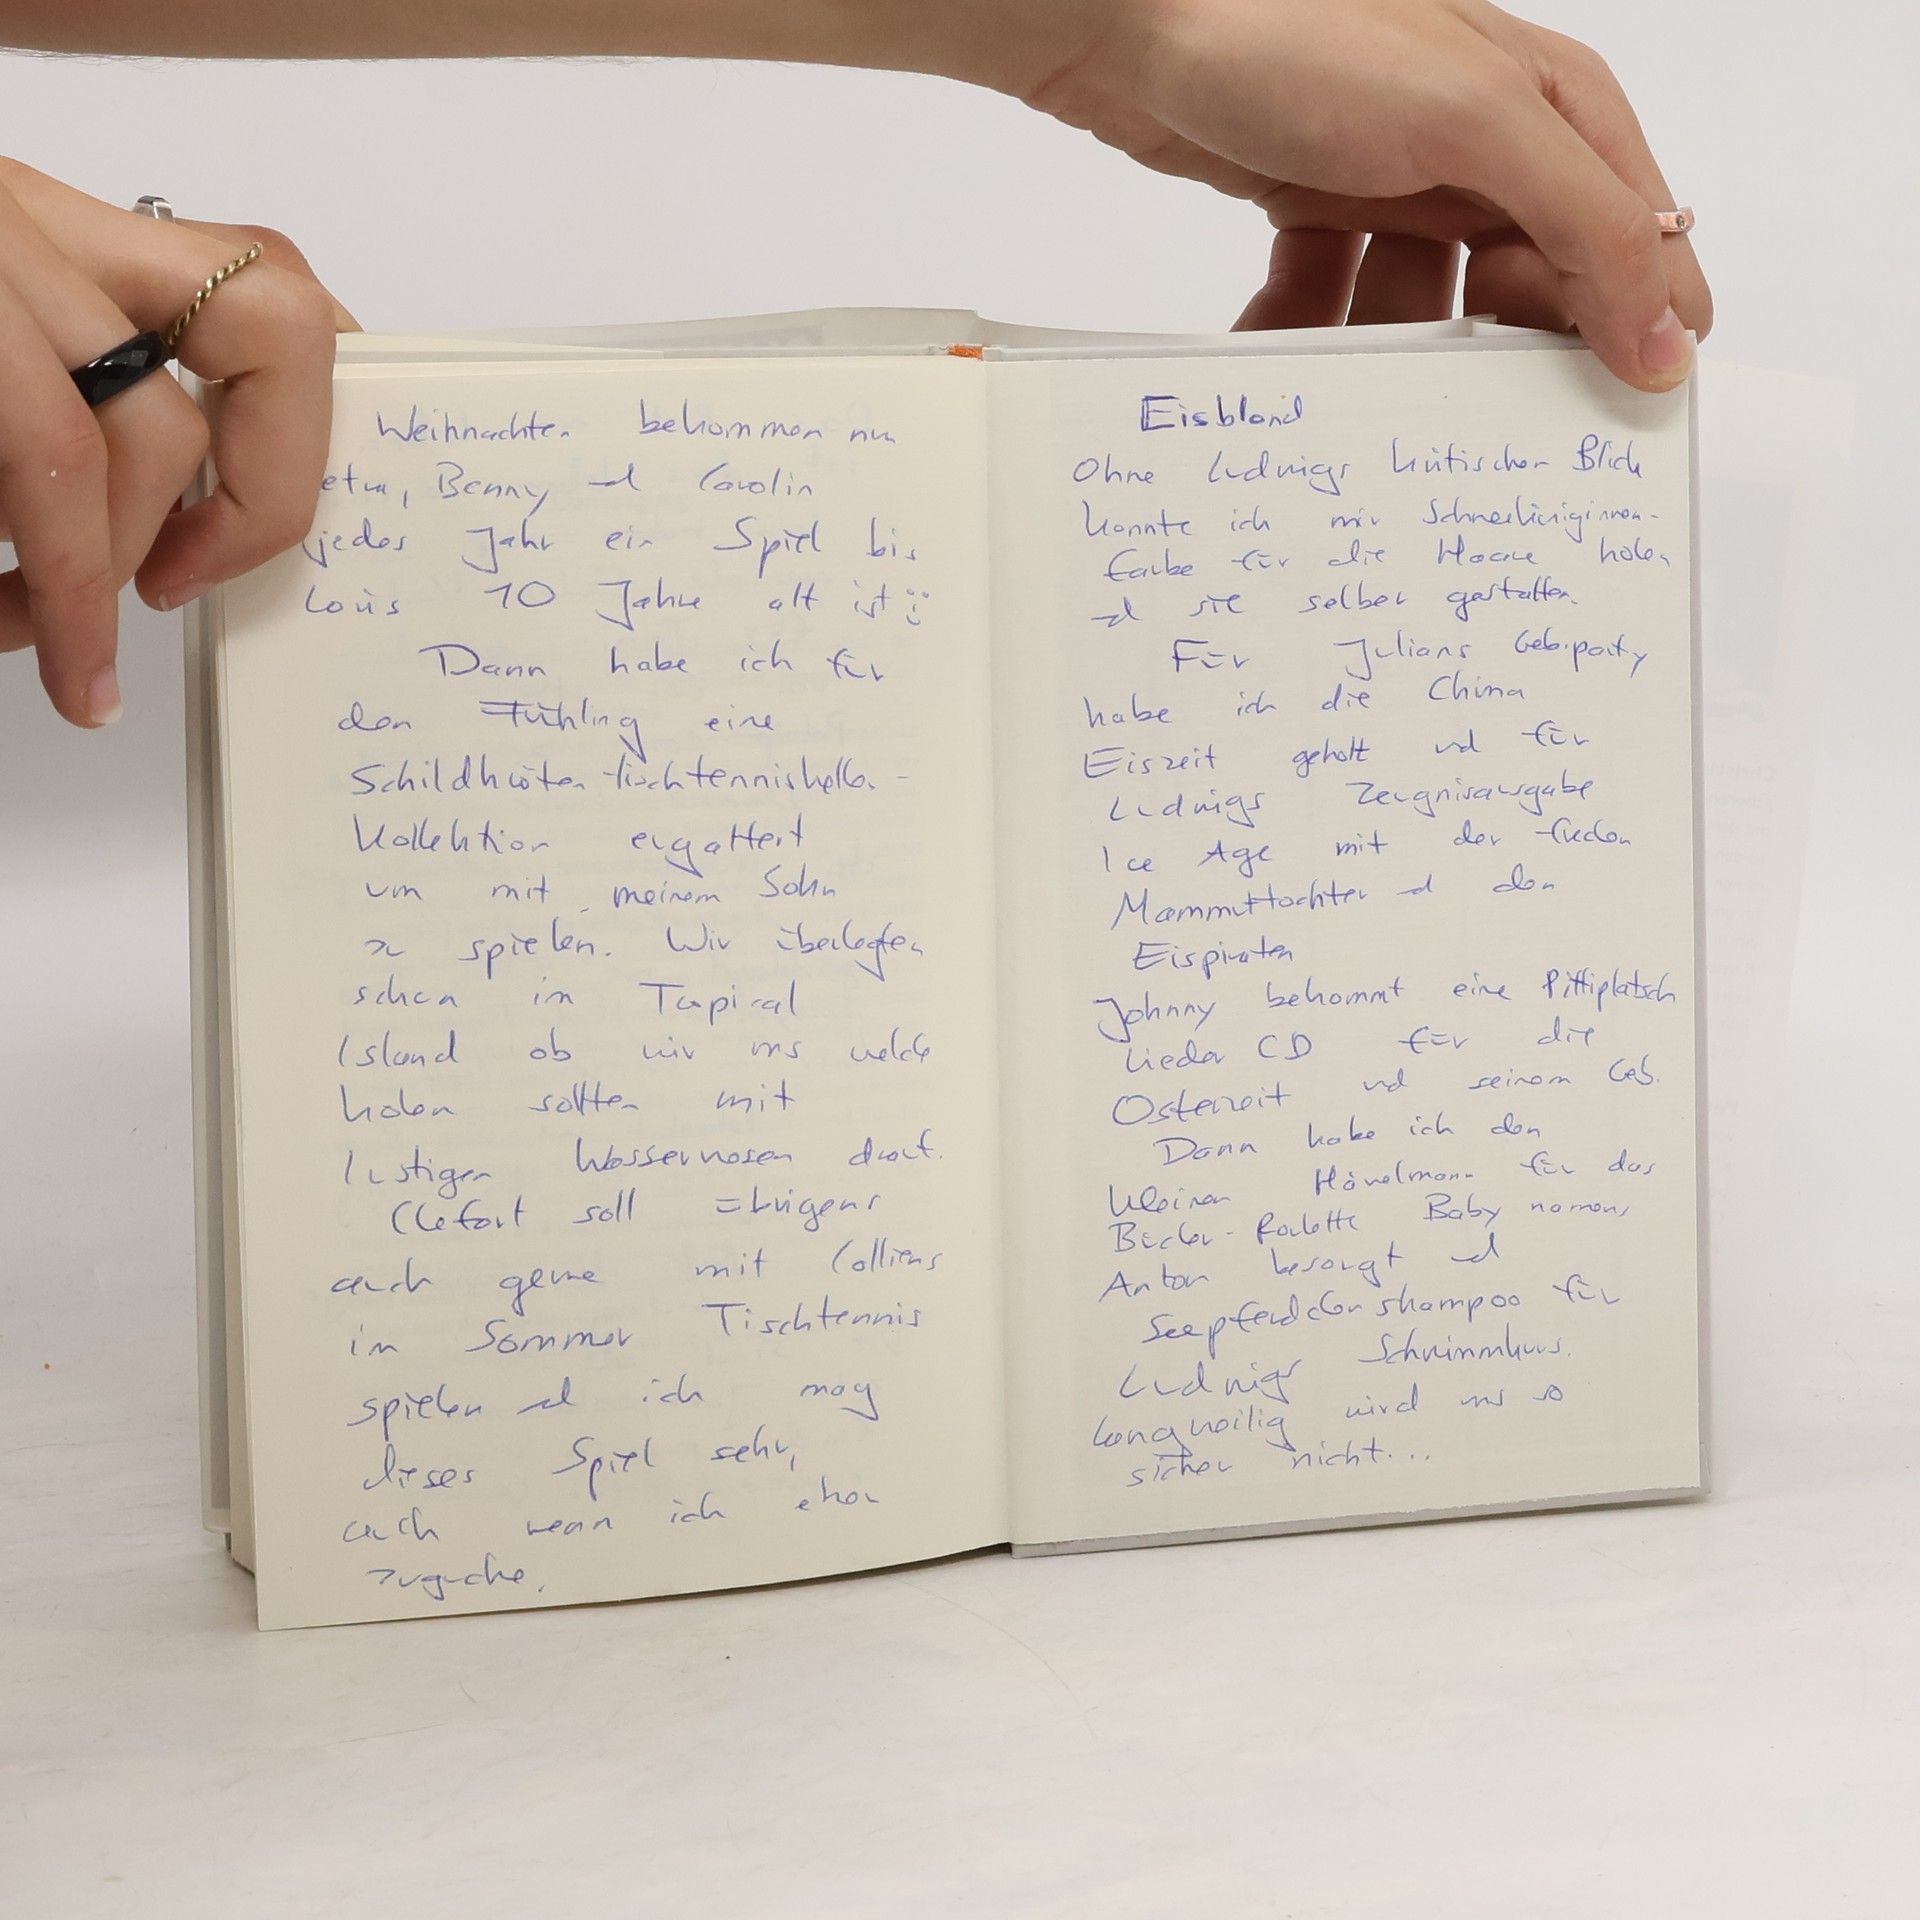 Weihnachten bekommen nun
etra, Benny und Carolin
jedes Jahr ein Spiel bis
Louis 10 Jahre alt ist
Dann habe ich für
den Frühling eine
Schildkröten tischtenniskelle-
Kollektion ergattert
um mit meinem Sohn
zu spielen. Wir überlegten
schon in Tropical
Island ob wir uns welche
holen sollten mit
lustigen Wassernasen drauf.
soll übrigens
auch gerne mit Colliens
im Sommer Tischtennis
spielen und ich mag
dieses Spiel sehr,
auch wenn ich eher
zugucke.
Eisblond
Ohne Ludwigs kritischen Blick
konnte ich mir Schneeköniginnen-
farbe für die Haare holen
und sie selber gestalten.
Für Julians Geb.party
habe ich die China
Eiszeit geholt und für
Ludwigs Zeugnisausgabe
Ice Age mit der
Mammuttochter und den
Eispiraten
Johnny bekommt eine Pittiplatsch
Lieder CD für die
Osterzeit und seinem Geb.
Dann habe ich den
kleinen Häwelmann für das
Baby namens
Anton besorgt und
Seepferdchenshampoo für
Ludwigs Schwimmkurs.
langweilig wird uns so
sicher nicht...